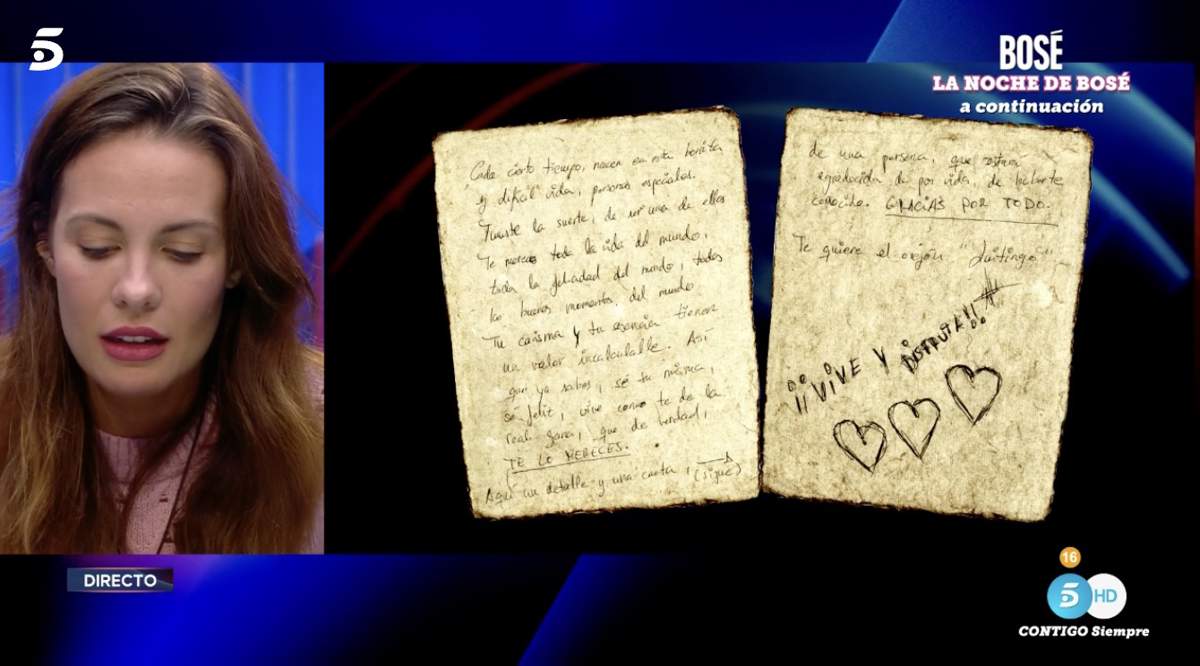 5
BOSÉ
LA NOCHE DE BOSÉ
a continuación
Cada cierto tiempo, nacen en esta bonita
y difícil vida, personas especiales.
Tuviste la suerte, de ser una de ellas
Te mereces toda la vida del mundo,
toda la felicidad del mundo, todos
los buenos momentos del mundo
Tu carisma y tu esencia tienen
un valor incalculable. Así
que ya sabes, sé tu misma,
sé feliz, vive como te de la
real gana, que de verdad,
TE LO MERECES.
Aquí un detalle y una carta, (sigue)
de una persona, que estará
agradecida de por vida, de haberte
conocido. GRACIAS POR TODO.
Te quiere el orejón "Luitingo"
¡¡VIVE Y DISFRUTA!!
DIRECTO
16
5 HD
CONTIGO Siempre